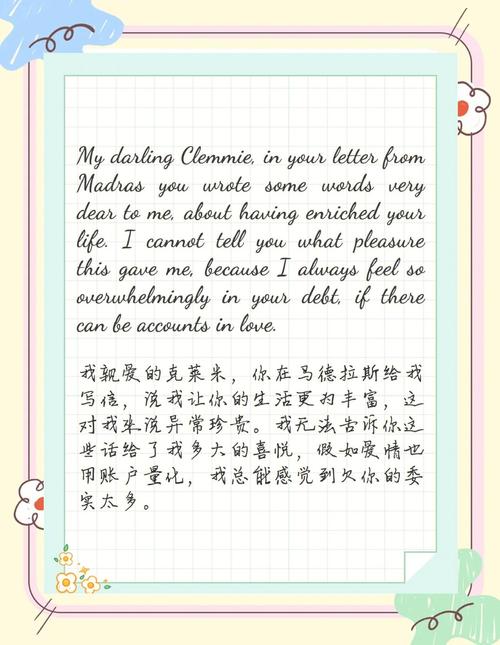 My darling Clemmie, in your letter from
Madras you wrote some words very
dear to me, about having enriched your
life. I cannot tell you what pleasure
this gave me, because I always feel so
overwhelmingly in your debt, if there
can be accounts in love.
我亲爱的克莱米，你在马德拉斯给我
写信，说我让你的生活更为丰富，这
对我来说异常珍贵。我无法告诉你这
些话给了我多大的喜悦，假如爱情也
用账户量化，我总能感觉到欠你的委
实太多。